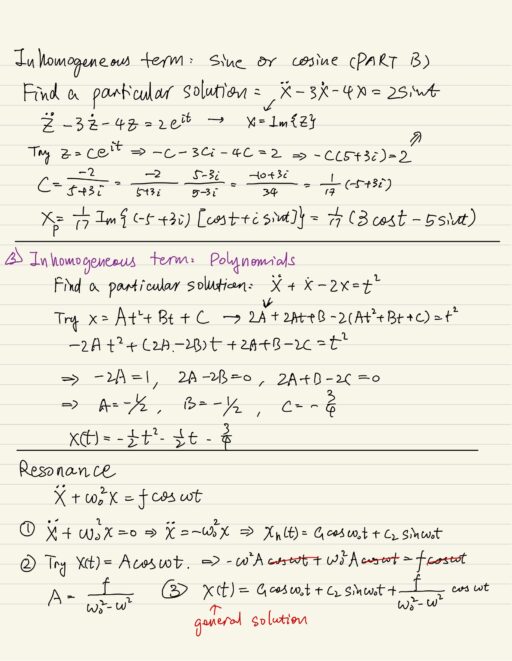 Inhomogeneous term: sine or cosine (PART B)
Find a particular solution = ẍ - 3ẋ - 4x = 2sint
z̈ - 3ż - 4z = 2e^{it} → x = Im{z}
Try z = Ce^{it} ⇒ -C - 3Ci - 4C = 2 ⇒ -C(5+3i) = 2
C = -2/(5+3i) = -2/(5+3i) (5-3i)/(5-3i) = (-10+3i)/34 = 1/17 (-5+3i)
x_p = 1/17 Im{(-5+3i)[cost + i sint]} = 1/17 (3cost - 5sint)
③ Inhomogeneous term: Polynomials
Find a particular solution: ẍ + ẋ - 2x = t²
Try x = At² + Bt + C → 2A + 2At + B - 2(At² + Bt + C) = t²
-2At² + (2A - 2B)t + 2A + B - 2C = t²
⇒ -2A = 1, 2A - 2B = 0, 2A + B - 2C = 0
⇒ A = -1/2, B = -1/2, C = -3/4
x(t) = -1/2 t² - 1/2 t - 3/4
Resonance
ẍ + ω₀²x = f cos ωt
① ẍ + ω₀²x = 0 ⇒ ẍ = -ω₀²x ⇒ x_h(t) = C₁cosω₀t + C₂ sinω₀t
② Try x(t) = A cosωt. ⇒ -ω²A cosωt + ω₀²A cosωt = f cosωt
A = f/(ω₀² - ω²) ③ x(t) = C₁cosω₀t + C₂ sinω₀t + f/(ω₀² - ω²) cos ωt
general solution